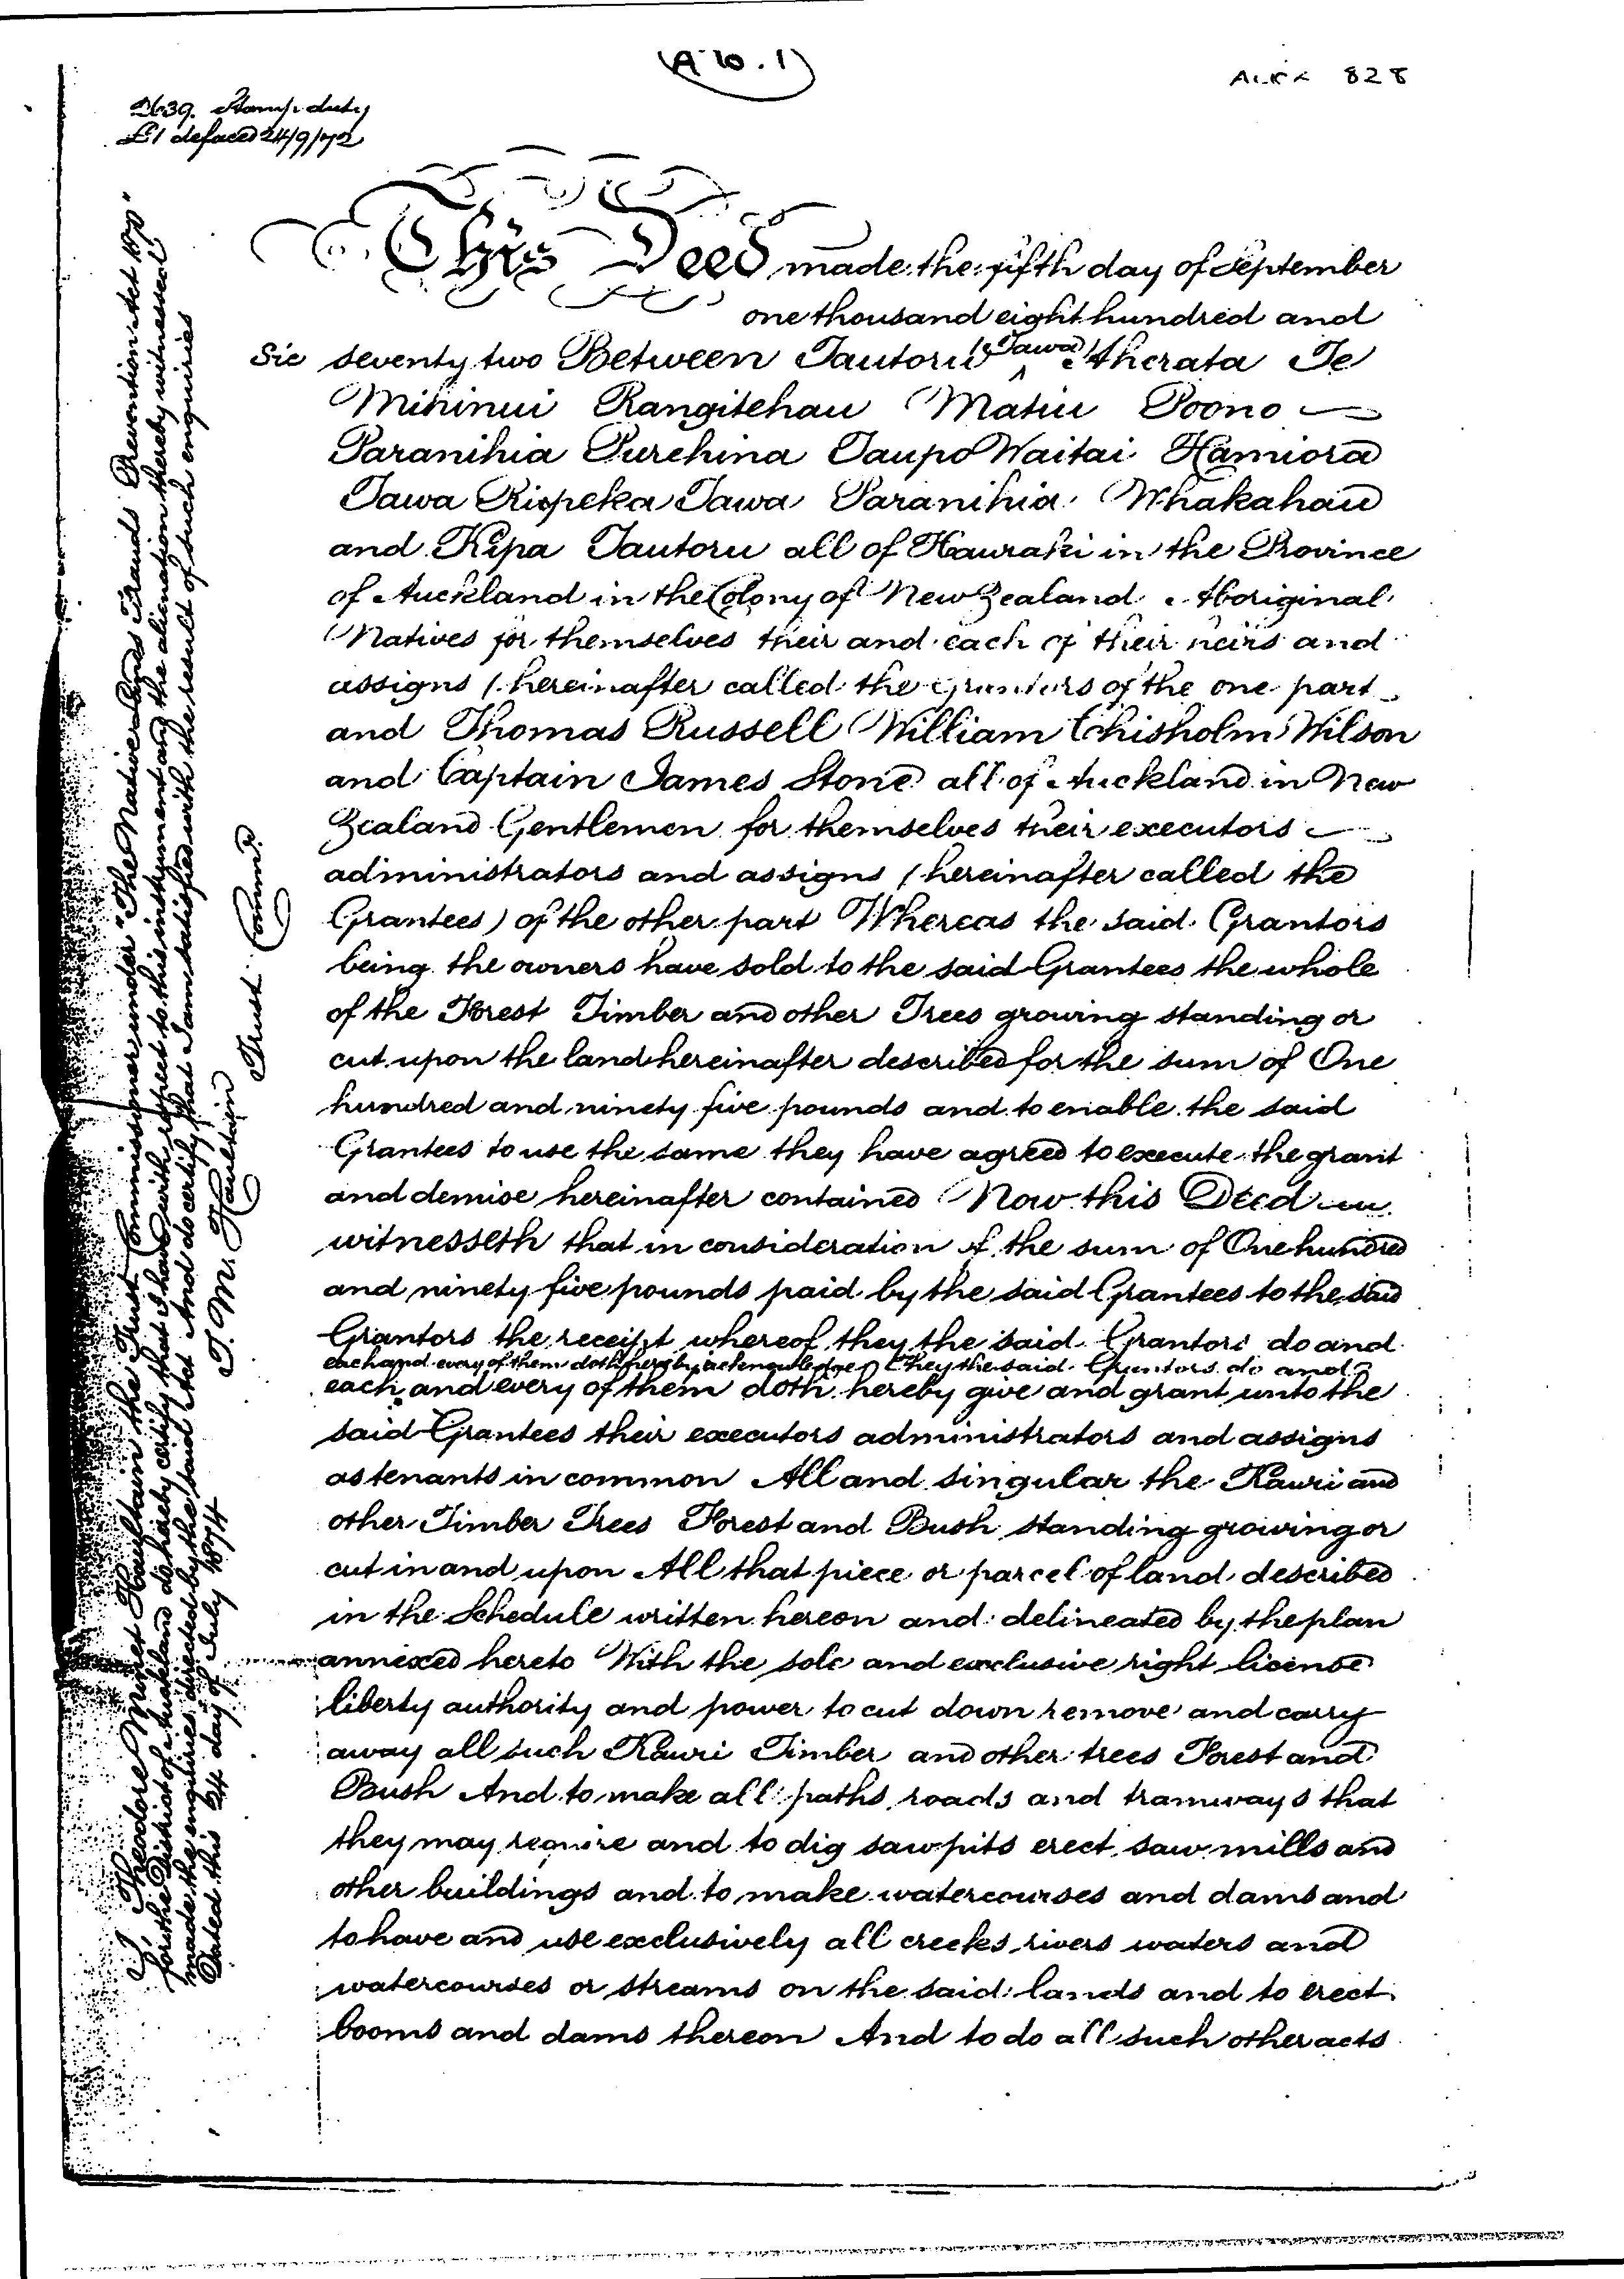 (A 10.1)
828
2639. Stamp duty
£1 defaced 24/9/72
This Deed made the fifth day of September
one thousand eight hundred and
Sic seventy two Between Tautoru (Tawa) Atherata Te
Mihinui Rangitehau Matiu Poono
Paranihia Purehina Taupo Waitai Hamiora
Tawa Riopeka Tawa Paranihia Whakahau
and Kipa Tautoru all of Hauraki in the Province
of Auckland in the Colony of New Zealand Aboriginal
Natives for themselves their and each of their heirs and
assigns (hereinafter called the Grantors of the one part
and Thomas Russell William Chisholm Wilson
and Captain James Stone all of Auckland in New
Zealand Gentlemen for themselves their executors
administrators and assigns (hereinafter called the
Grantees) of the other part Whereas the said Grantors
being the owners have sold to the said Grantees the whole
of the Forest Timber and other Trees growing standing or
cut upon the land hereinafter described for the sum of One
hundred and ninety five pounds and to enable the said
Grantees to use the same they have agreed to execute the grant
and demise hereinafter contained Now this Deed
witnesseth that in consideration of the sum of One hundred
and ninety five pounds paid by the said Grantees to the said
Grantors the receipt whereof they the said Grantors do and
each and every of them doth hereby acknowledge They the said Grantors do and
each and every of them doth hereby give and grant unto the
said Grantees their executors administrators and assigns
as tenants in common All and singular the Kauri and
other Timber Trees Forest and Bush standing growing or
cut in and upon All that piece or parcel of land described
in the Schedule written hereon and delineated by the plan
annexed hereto With the sole and exclusive right license
liberty authority and power to cut down remove and carry
away all such Kauri Timber and other trees Forest and
Bush And to make all paths roads and tramways that
they may require and to dig sawpits erect saw mills and
other buildings and to make watercourses and dams and
to have and use exclusively all creeks rivers waters and
watercourses or streams on the said lands and to erect
booms and dams thereon And to do all such other acts
I Theodore Minet Haultain the Trust Commissioner under "The Native Lands Frauds Prevention Act 1870"
for the District of Auckland do hereby certify that I have with respect to this instrument and the alienation thereby witnessed
made the enquiries directed by the said Act And do certify that I am satisfied with the result of such enquiries
Dated this 24 day of July 1874
T. M. Haultain
Trust Commr.